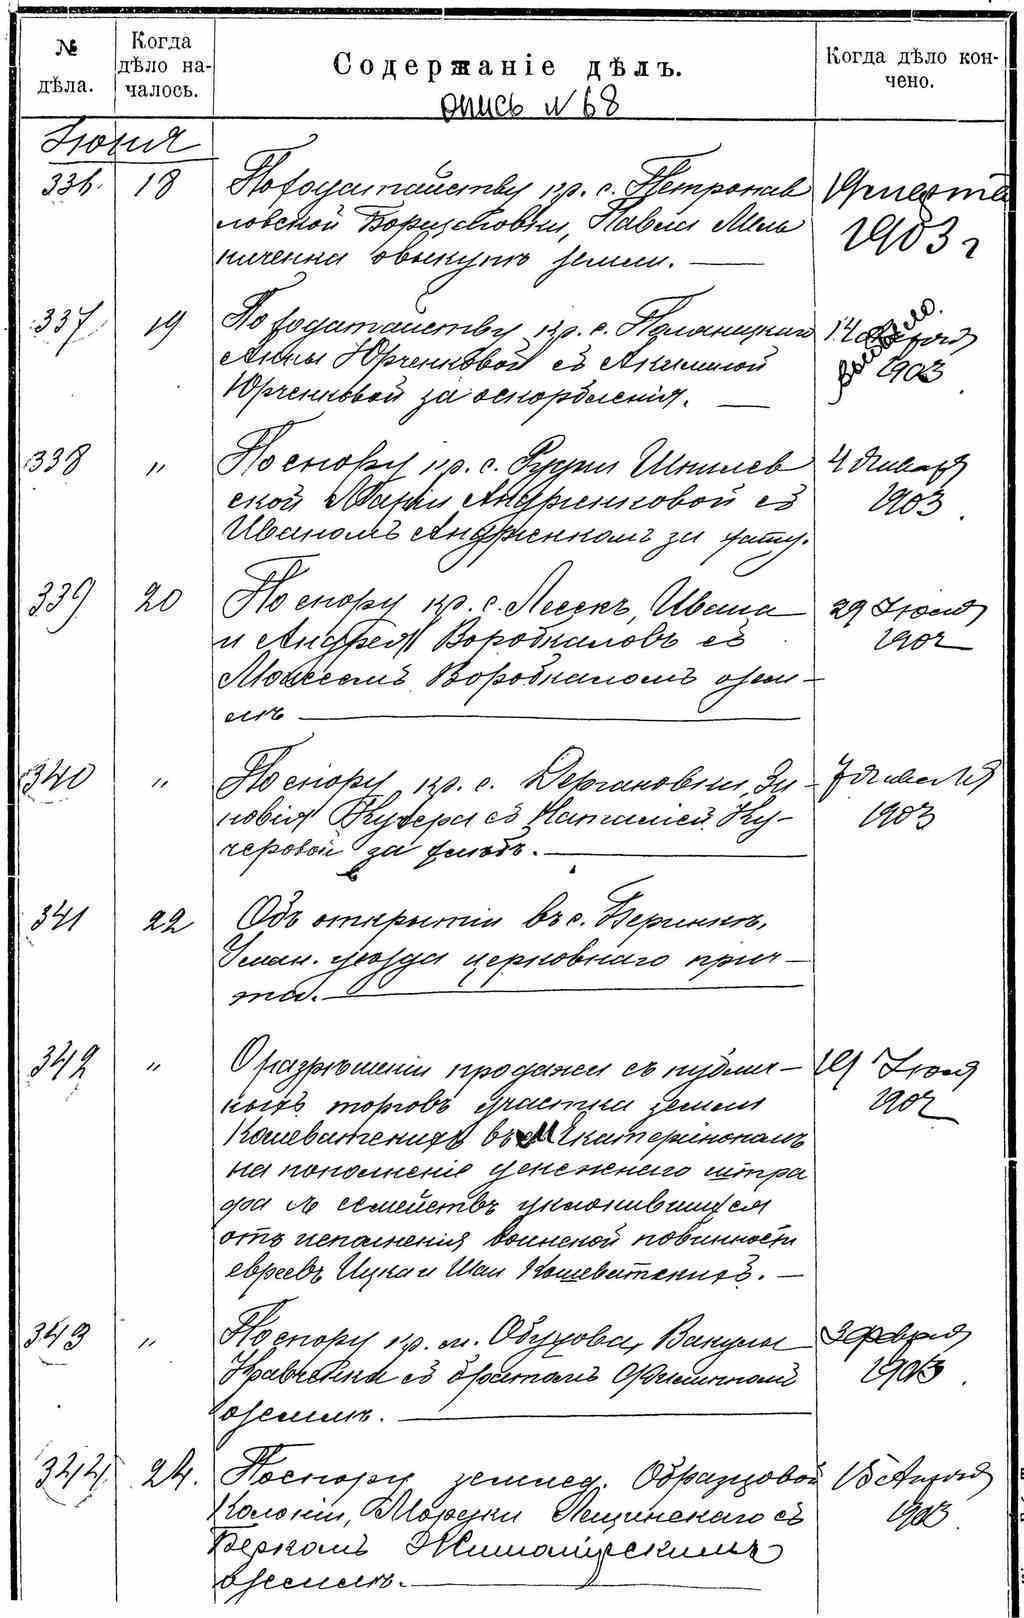 № дѣла.
Когда дѣло на-
чалось.
Содержаніе дѣлъ.
Когда дѣло кон-
чено.
опись № 68
Іюня
336. 18 По ходатайству кр. с. Петропав
ловской Борщаговки, Павла Мель
ниченка о выкупѣ земли. —
1903 г
337 19 По ходатайству кр. с.
Анны Юрченковой съ Акилиной
Юрченковой за оскорбленія. —
14
1903
338 " По спору кр. с. Рудни Шпилев
ской Маріи Андріенковой съ
Иваномъ Андріенкомъ за хату.
4 Января
1903
339 20 По спору кр. с. Лесекъ, Ивана
и Андрея Воробкаловъ съ
Моисеемъ Воробкаломъ о зем-
лѣ —
29 Іюля
1902
340 " По спору кр. с. Дергановки, Зи-
новія Кучера съ Наталіей Ку-
черовой за хлѣбъ. —
7 Января
1903
341 22 Объ открытіи въ с.
Уман. уѣзда церковнаго прич-
та. —
342 " О разрѣшеніи продажи съ публич-
ныхъ торговъ участка земли
Кошеватскихъ въ м. Екатеринополѣ
на пополненіе денежнаго штра
фа съ семействъ уклонившихся
отъ исполненія воинской повинности
евреевъ Ицка и Шаи Кошеватскихъ. —
19 Іюля
1902
343 " По спору кр. м. Обухова, Вакулы
Кравченка съ братомъ
о землѣ. —
3 февраля
1903
344 24. По спору землед. Образцовой
Колоніи, Мордки Лещинскаго съ
Беркомъ Житомірскимъ
о землѣ. —
15 Апрѣля
1903